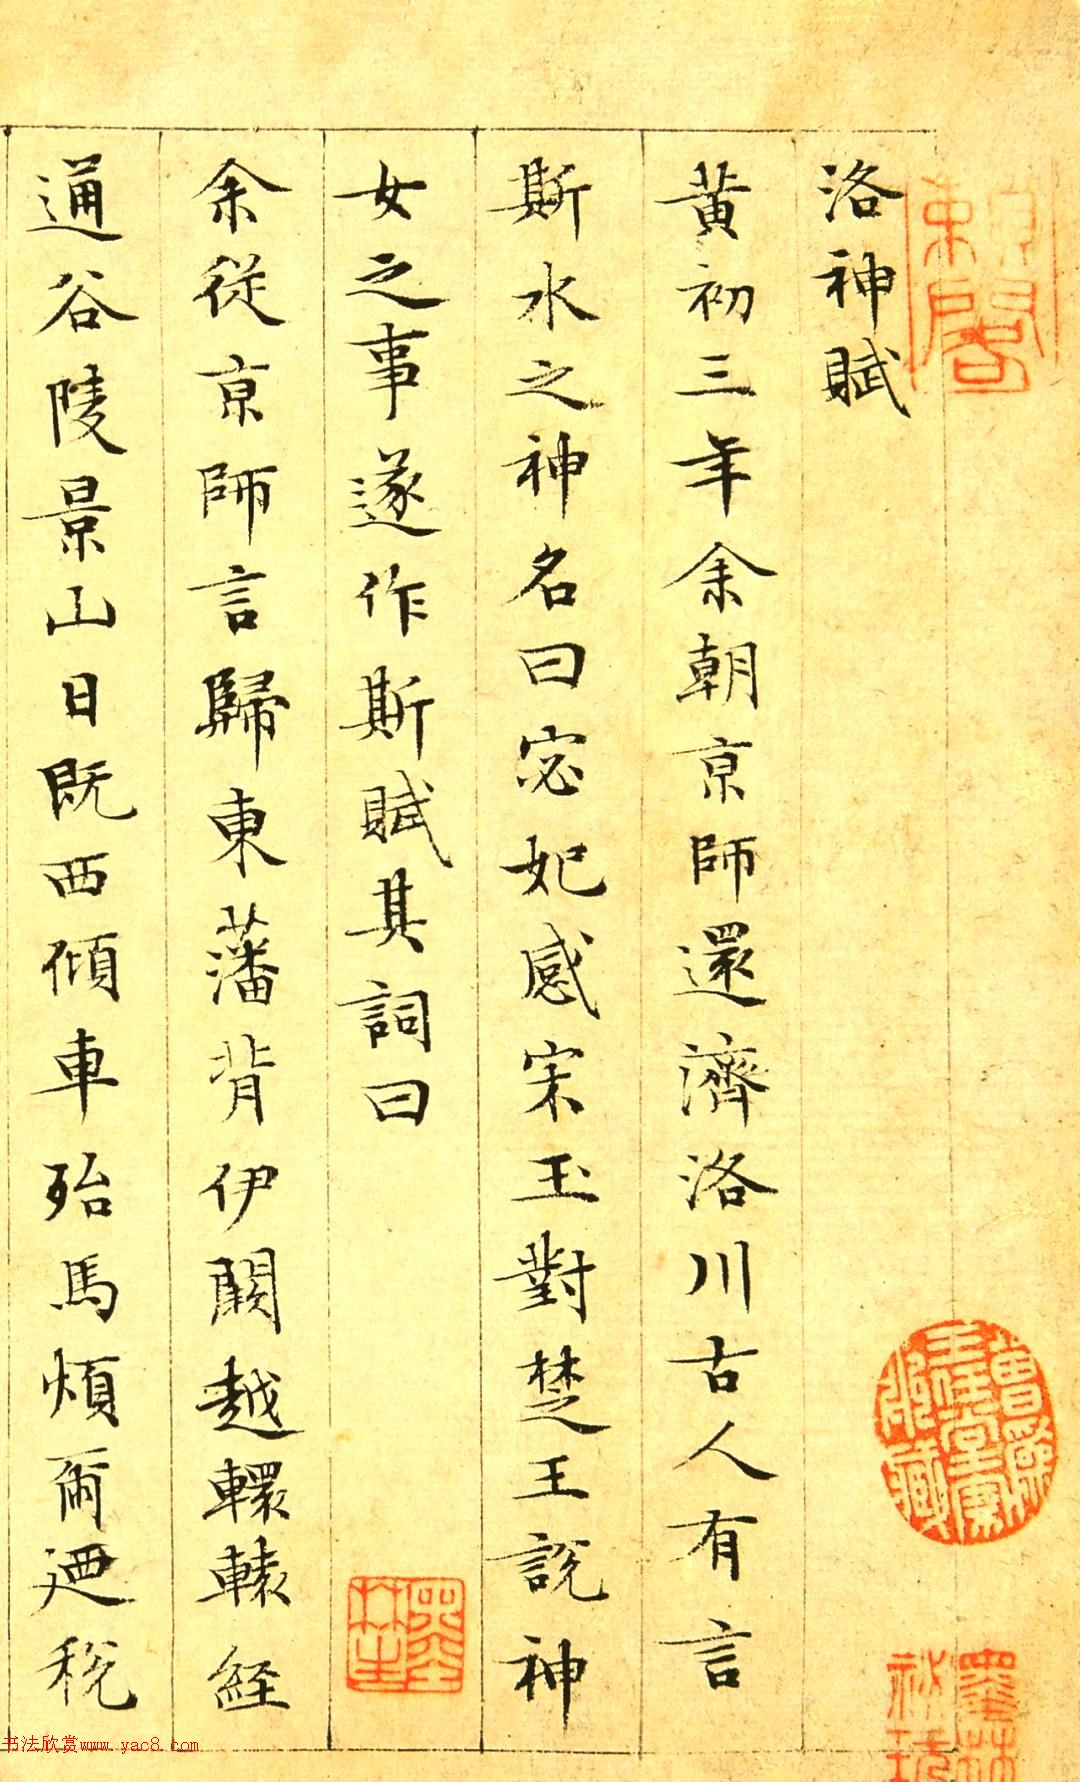 洛神賦
黄初三年余朝京師還濟洛川古人有言
斯水之神名曰宓妃感宋玉對楚王說神
女之事遂作斯賦其詞曰
余從京師言歸東藩背伊闕越轘轅經
通谷陵景山日既西傾車殆馬煩爾迺稅
墨林生
書法欣赏www.yac8.com